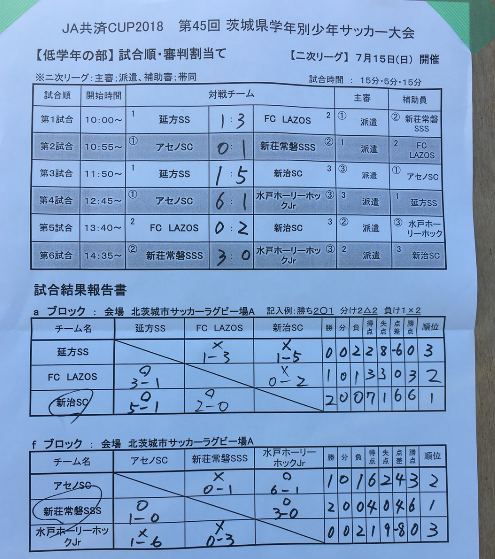 JA共済CUP2018 第45回 茨城県学年別少年サッカー大会
【低学年の部】試合順・審判割当て 【二次リーグ】 7月15日(日) 開催
※二次リーグ:主審;派遣、補助審:帯同 試合時間 : 15分-5分-15分
試合順 開始時間 対戦チーム 主審 補助員
第1試合 10:00~ 1 延方SS 1:3 FC LAZOS 2 ① 派遣 ② 新荘常磐SSS
第2試合 10:55~ ① アセノSC 0:1 新荘常磐SSS ② 1 派遣 2 FC LAZOS
第3試合 11:50~ 1 延方SS 1:5 新治SC 3 ③ 派遣 ① アセノSC
第4試合 12:45~ ① アセノSC 6:1 水戸ホーリーホックJr ③ 3 派遣 1 延方SS
第5試合 13:40~ 2 FC LAZOS 0:2 新治SC 3 ② 派遣 ③ 水戸ホーリーホック
第6試合 14:35~ ② 新荘常磐SSS 3:0 水戸ホーリーホックJr ③ 2 派遣 3 新治SC
試合結果報告書
a ブロック : 会場 北茨城市サッカーラグビー場A 記入例:勝ち2○1 分け2△2 負け1×2
チーム名 延方SS FC LAZOS 新治SC 勝 分 負 得点 失点 点差 勝点 順位
延方SS × 1-3 × 1-5 0 0 2 2 8 -6 0 3
FC LAZOS ○ 3-1 × 0-2 1 0 1 3 3 0 3 2
新治SC ○ 5-1 ○ 2-0 2 0 0 7 1 6 6 1
f ブロック : 会場 北茨城市サッカーラグビー場A
チーム名 アセノSC 新荘常磐SSS 水戸ホーリーホックJr 勝 分 負 得点 失点 点差 勝点 順位
アセノSC × 0-1 ○ 6-1 1 0 1 6 2 4 3 2
新荘常磐SSS ○ 1-0 ○ 3-0 2 0 0 4 0 4 6 1
水戸ホーリーホックJr × 1-6 × 0-3 0 0 2 1 9 -8 0 3